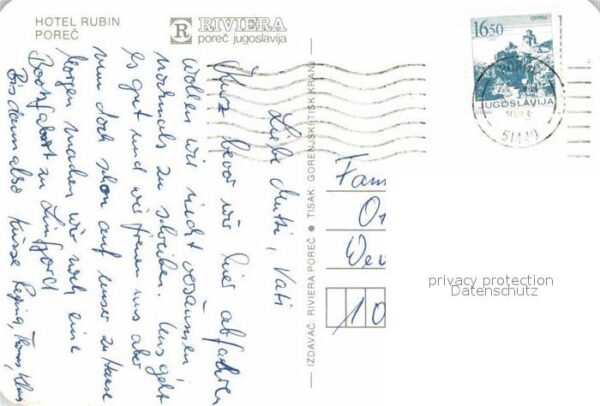 HOTEL RUBIN
POREČ
R RIVIERA
poreč jugoslavija
Liebe Mutti, Vati
Kurz bevor wir hier abfahren
wollen wir nicht versäumen
nochmals zu schreiben. Uns geht
es gut und wir freuen uns aber
nun doch schon auf unser zu Hause
Morgen machen wir noch eine
Bootsfahrt zu Limfjord
Bis dann also Küsse Regina, Klaus
IZDAVAČ: RIVIERA POREČ ● TISAK GORENJSKI TISK KRANJ
16,50
JUGOSLAVIJA
51440
Fam
10
privacy protection
Datenschutz